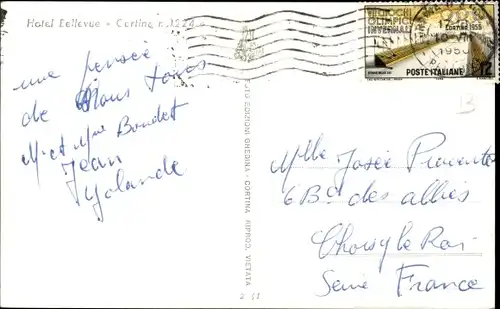 Hotel Bellevue - Cortina m.1224
une pensée
de Nous tous
M. et Mme Boudet
Jean
Yolande
FOTO EDIZIONI GHEDINA - CORTINA RIPROD. VIETATA
VII GIOCHI
OLIMPICI
INVERNALI
CORTINA 1956
POSTE ITALIANE
Mlle Josée
6 Bd des alliés
Choisy le Roi
Seine France